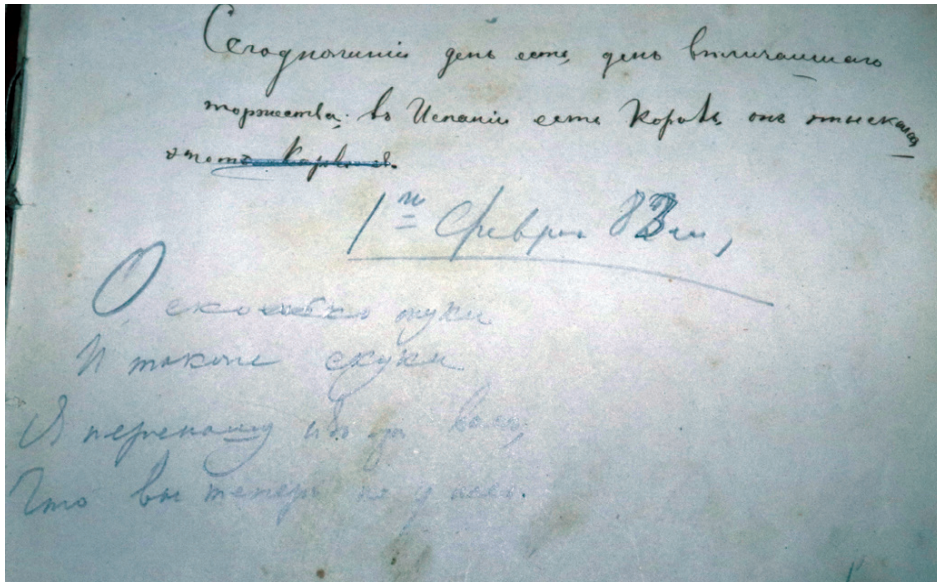 Сегодняшній день есть день величайшаго
торжества: въ Испаніи есть Король онъ отыскался
этотъ Король я.
1го Февраля 83 г.,
О сколько муки
И только скуки
Я переношу изъ за васъ,
Что вы теперь не у насъ.